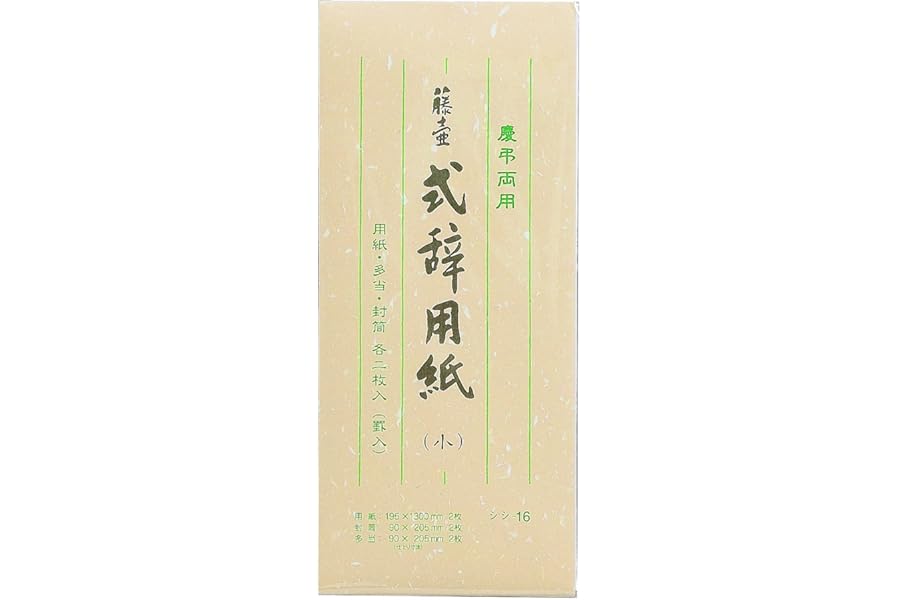 慶弔両用
藤壺
式辞用紙
(小)
用紙・多当・封筒 各二枚入(罫入)
シシ-16
用 紙：195×1300mm 2枚
封 筒： 90×205mm 2枚
多 当： 90×205mm 2枚